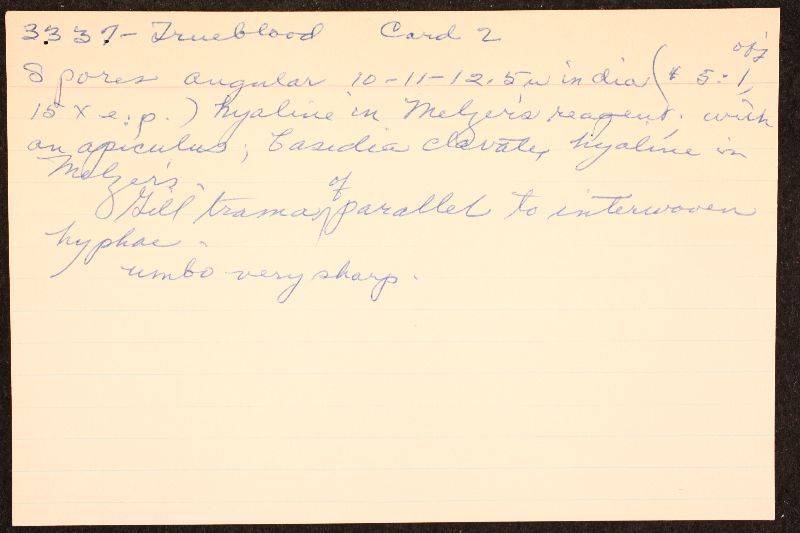 3337- Trueblood Card 2
Spores angular 10-11-12.5u in dia ( 5:1, obj
15 x e.p.) hyaline in Melzer's reagent, with
an apiculus; basidia clavate, hyaline in
Melzer's.
Gill trama of parallel to interwoven
hyphae.
umbo very sharp.